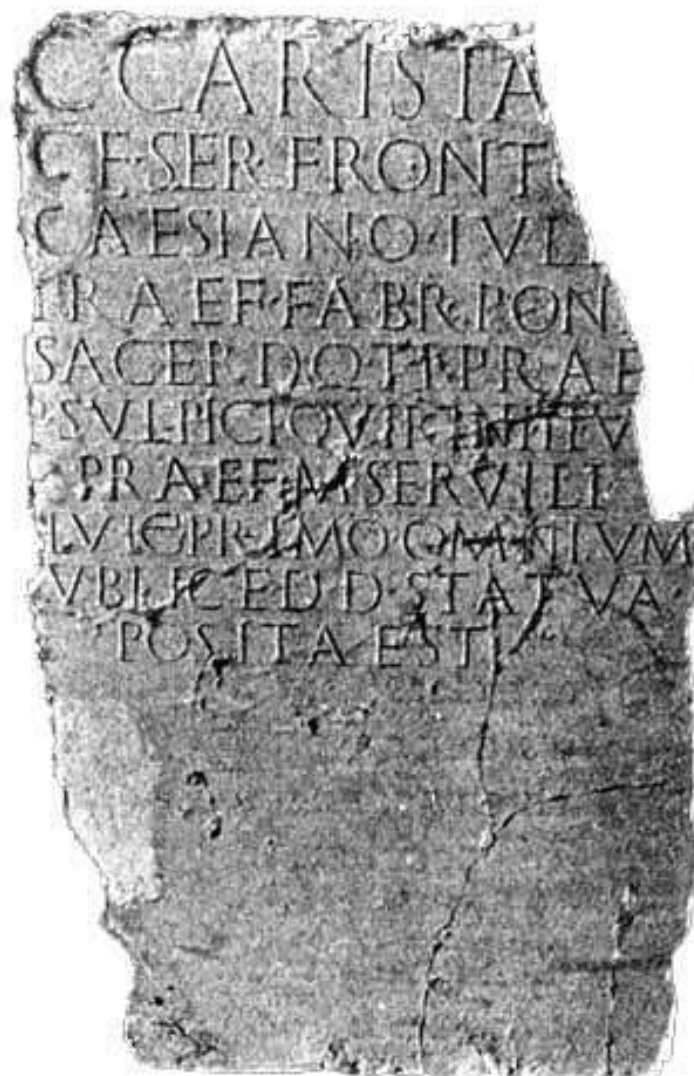 C CARISTA
C F SER FRONT
CAESIANO IVL
PRAEF FABR PON
SACERDOTI PRAE
P SVLPICI QVIRINI II V
PRAEF M SERVILI
PRIMO OMNIVM
VBLICE D D STATVA
POSITA EST